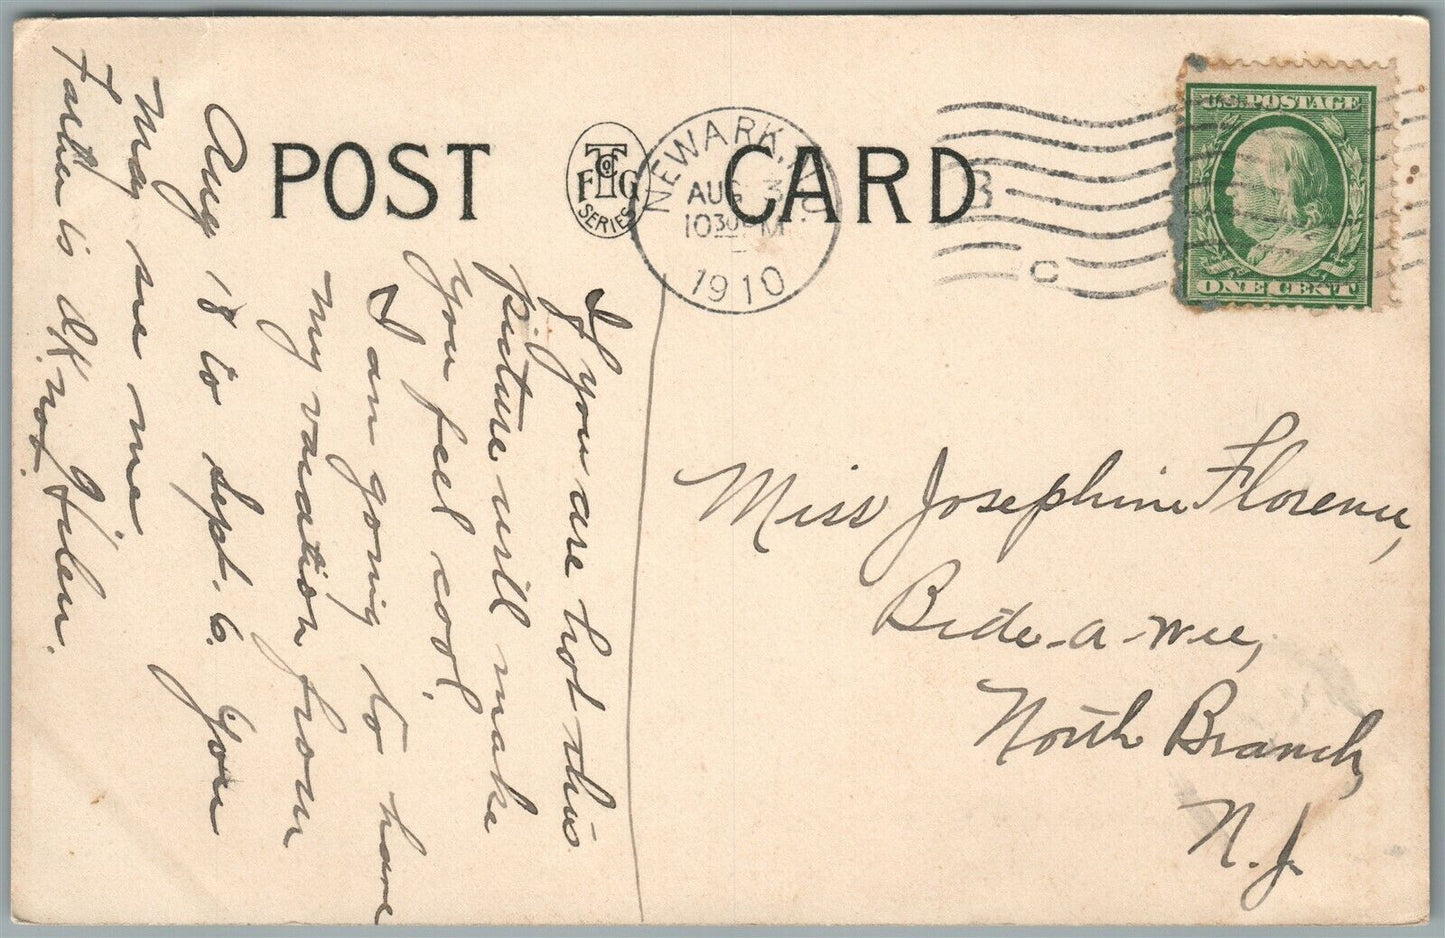 POST CARD
T of FG
SERIES
NEWARK, N.J.
AUG 3
1030 PM
1910
C
U.S. POSTAGE
ONE CENT
If you are hot this
picture will make
you feel cool.
I am going to have
my vacation from
Aug 18 to Sept. 6. You
may see me
Father is O.K. now.
Helen.
Miss Josephine Florence,
Bide-a-wee,
North Branch,
N.J.